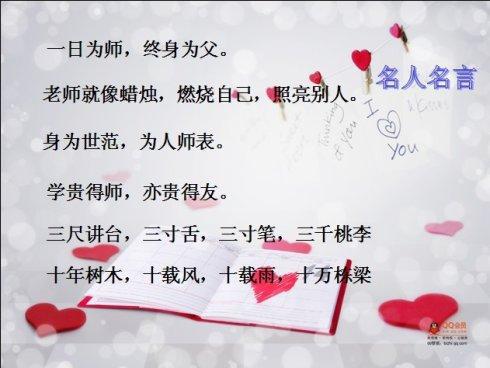 一日为师，终身为父。
名人名言
老师就像蜡烛，燃烧自己，照亮别人。
I
You
Thinking
of You
身为世范，为人师表。
学贵得师，亦贵得友。
三尺讲台，三寸舌，三寸笔，三千桃李
十年树木，十载风，十载雨，十万栋梁
QQ会员